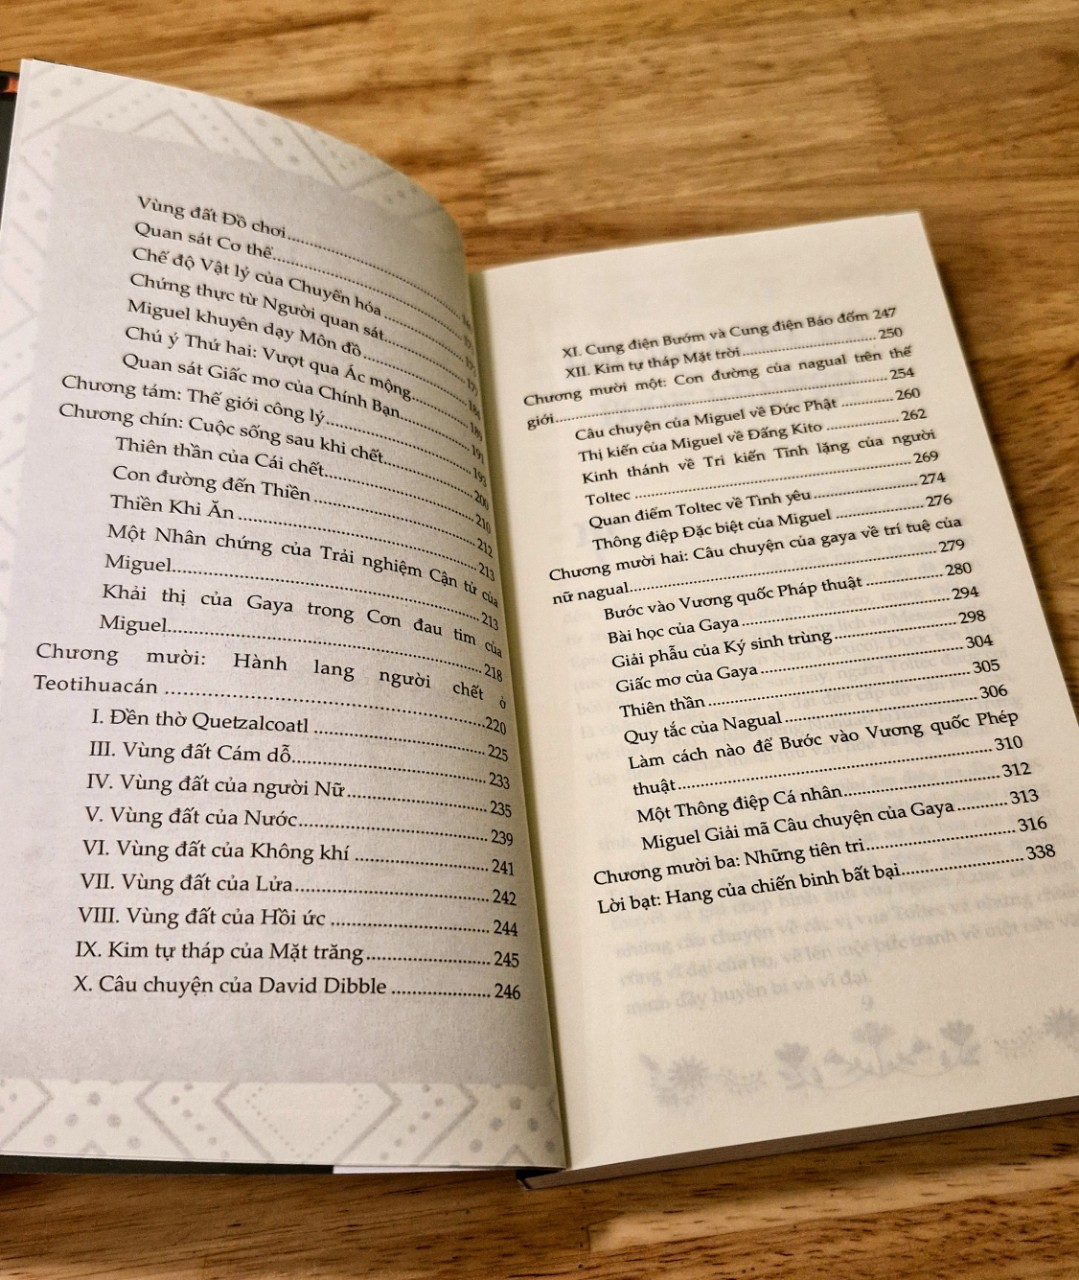 Vùng đất Đồ chơi
Quan sát Cơ thể
Chế độ Vật lý của Chuyển hóa
Chứng thực từ Người quan sát
Miguel khuyên dạy Môn đồ
Chú ý Thứ hai: Vượt qua Ác mộng
Quan sát Giấc mơ của Chính Bạn
Chương tám: Thế giới công lý
Chương chín: Cuộc sống sau khi chết
Thiên thần của Cái chết
Con đường đến Thiền
Thiền Khi Ăn
Một Nhân chứng của Trải nghiệm Cận tử của
Miguel..................213
Khải thị của Gaya trong Cơn đau tim của
Miguel..................218
Chương mười: Hành lang người chết ở
Teotihuacán ..................220
I. Đền thờ Quetzalcoatl ..................225
III. Vùng đất Cám dỗ..................233
IV. Vùng đất của người Nữ..................235
V. Vùng đất của Nước..................239
VI. Vùng đất của Không khí ..................241
VII. Vùng đất của Lửa..................242
VIII. Vùng đất của Hồi ức ..................244
IX. Kim tự tháp của Mặt trăng..................245
X. Câu chuyện của David Dibble ..................246
XI. Cung điện Bướm và Cung điện Báo đốm 247
XII. Kim tự tháp Mặt trời..................250
Chương mười một: Con đường của nagual trên thế
giới..................254
Câu chuyện của Miguel về Đức Phật ............260
Thị kiến của Miguel về Đấng Kito ............262
Kinh thánh về Tri kiến Tĩnh lặng của người
Toltec ..................269
Quan điểm Toltec về Tình yêu..................274
Thông điệp Đặc biệt của Miguel ..................276
Chương mười hai: Câu chuyện của gaya về trí tuệ của
nữ nagual..................279
Bước vào Vương quốc Pháp thuật ............280
Bài học của Gaya ..................294
Giải phẫu của Ký sinh trùng..................298
Giấc mơ của Gaya ..................304
Thiên thần ..................305
Quy tắc của Nagual ..................306
Làm cách nào để Bước vào Vương quốc Phép
thuật..................310
Một Thông điệp Cá nhân..................312
Miguel Giải mã Câu chuyện của Gaya ..........313
Chương mười ba: Những tiên tri..................316
Lời bạt: Hang của chiến binh bất bại..................338